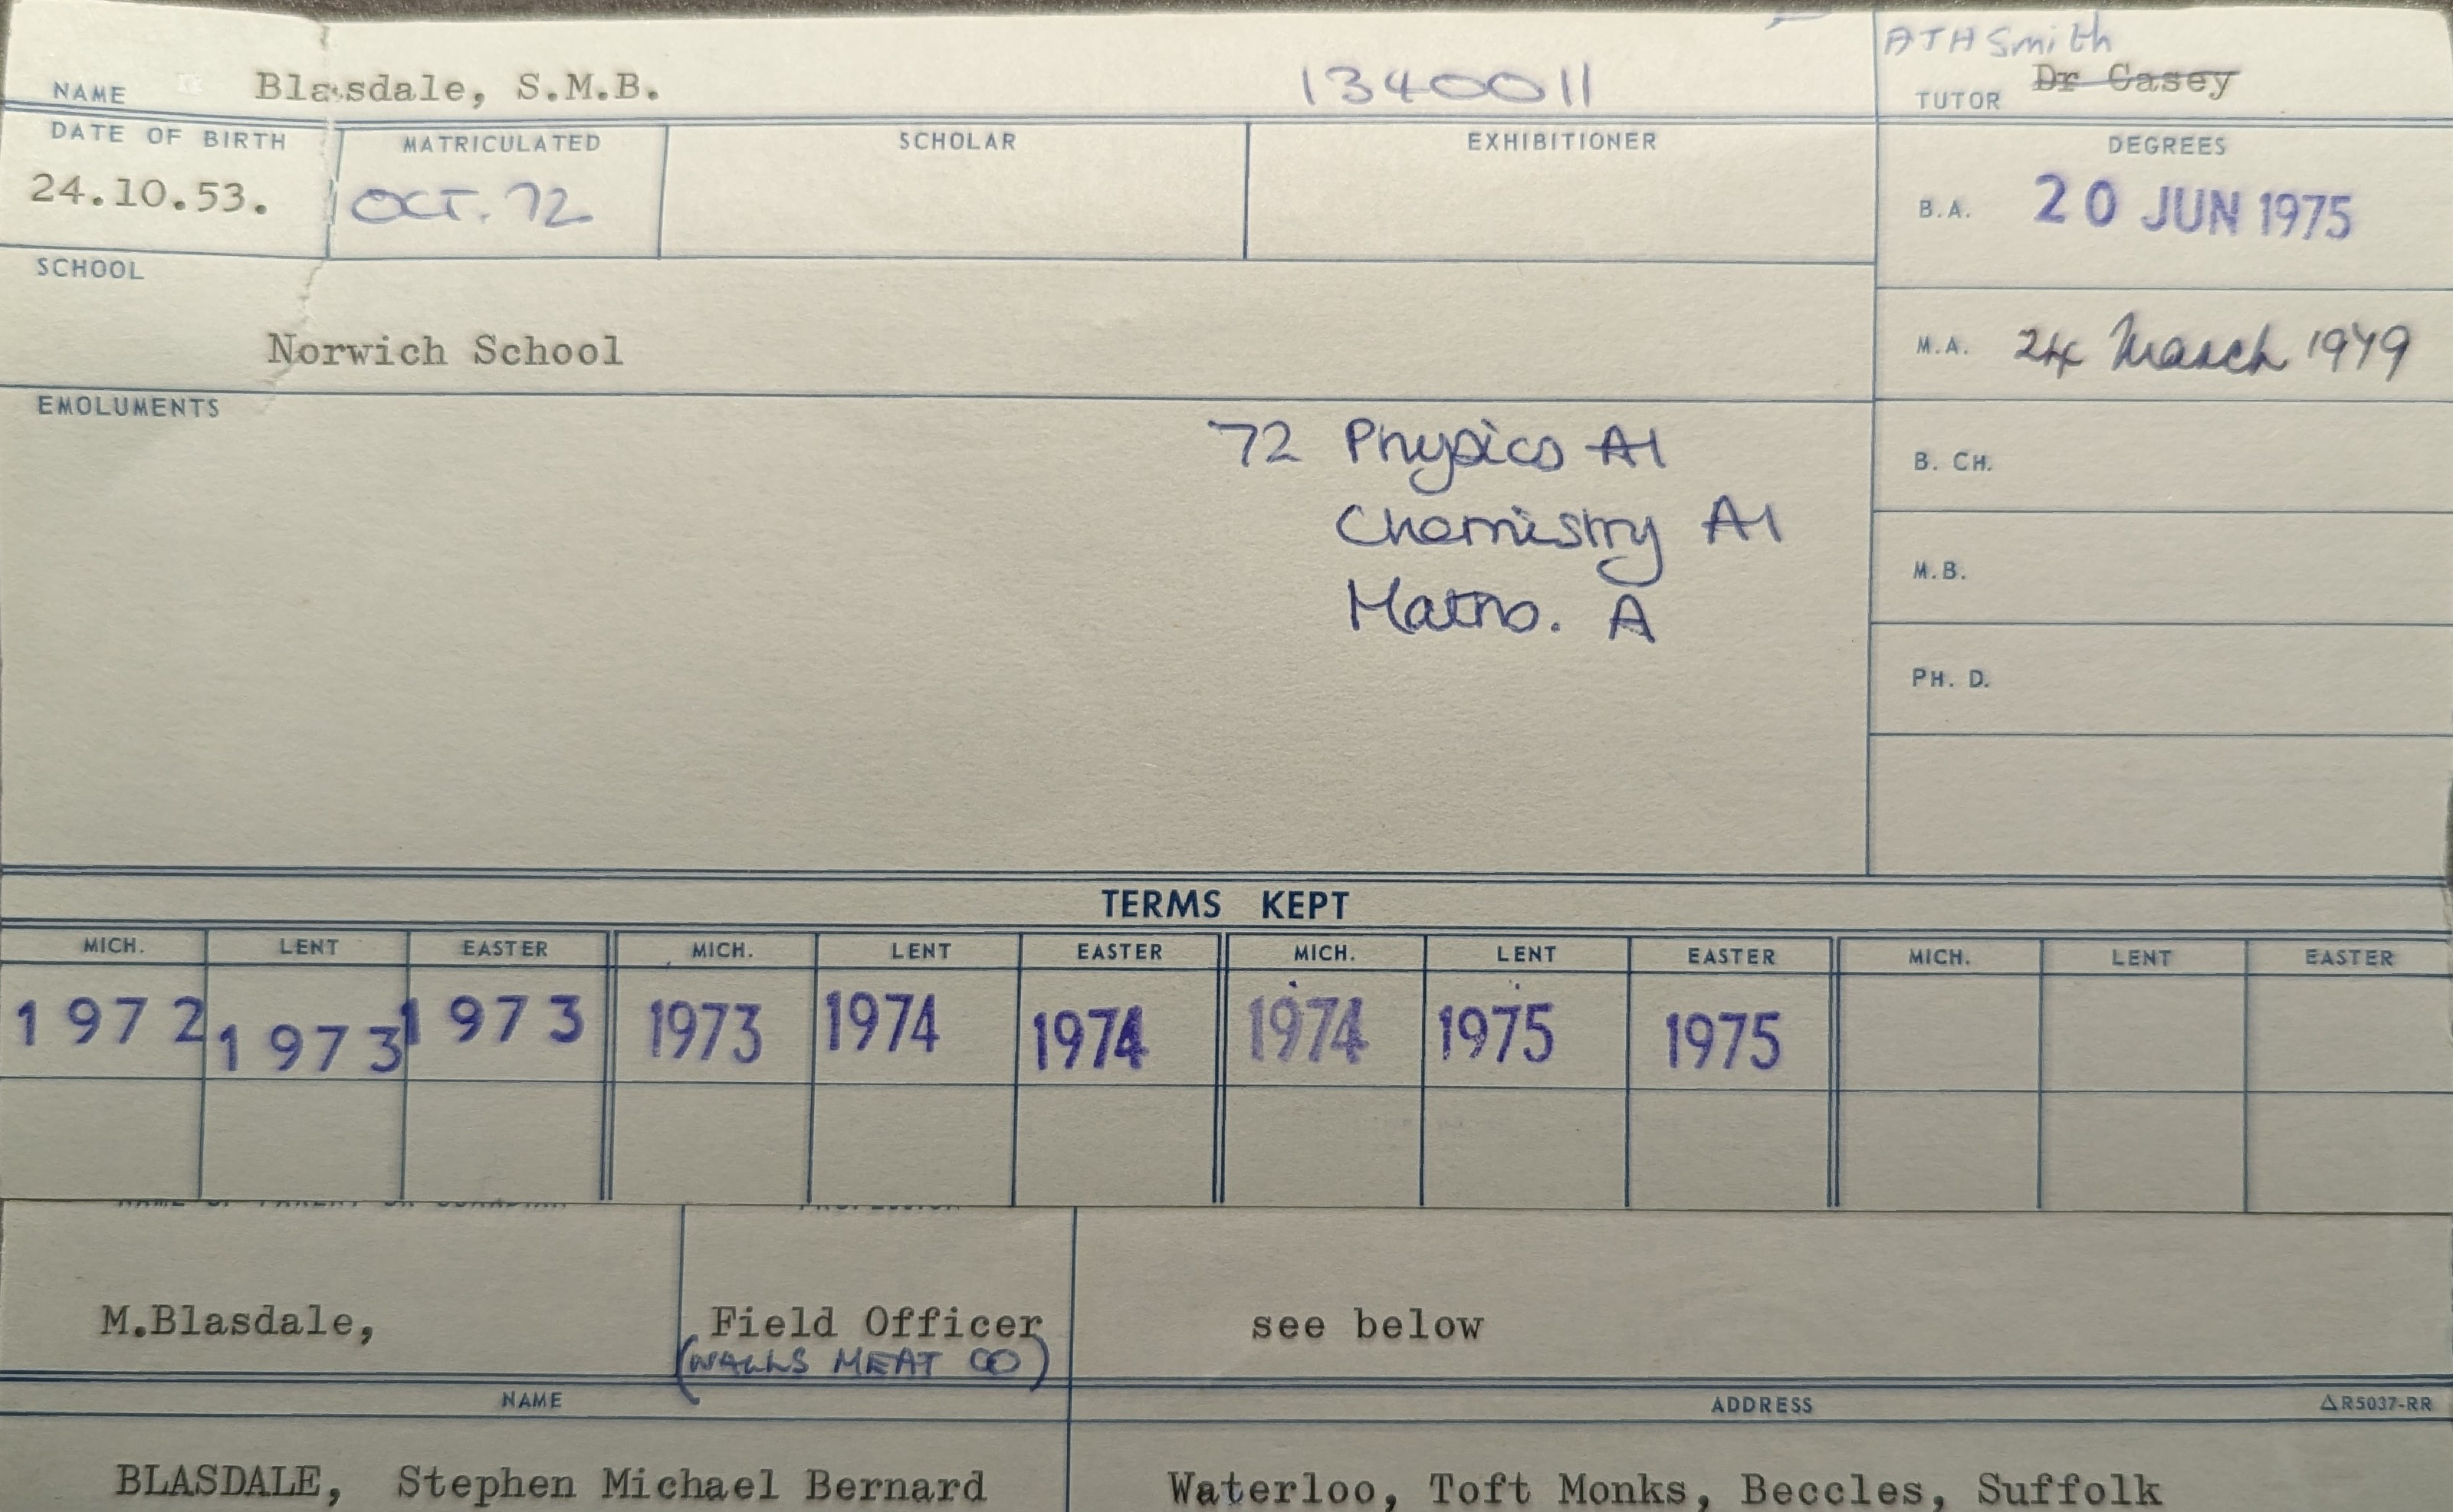 ATH Smith
NAME Blasdale, S.M.B. 1340011 TUTOR Dr Casey
DATE OF BIRTH MATRICULATED SCHOLAR EXHIBITIONER DEGREES
24.10.53. OCT. 72 B.A. 20 JUN 1975
SCHOOL
Norwich School M.A. 24 March 1979
EMOLUMENTS
72 Physics A1 B. CH.
Chemistry A1 M.B.
Maths. A
PH. D.
TERMS KEPT
MICH. LENT EASTER MICH. LENT EASTER MICH. LENT EASTER MICH. LENT EASTER
1972 1973 1973 1973 1974 1974 1974 1975 1975
NAME OF PARENT OR GUARDIAN PROFESSION
M.Blasdale, Field Officer see below
(WALLS MEAT CO)
NAME ADDRESS △R5037-RR
BLASDALE, Stephen Michael Bernard Waterloo, Toft Monks, Beccles, Suffolk